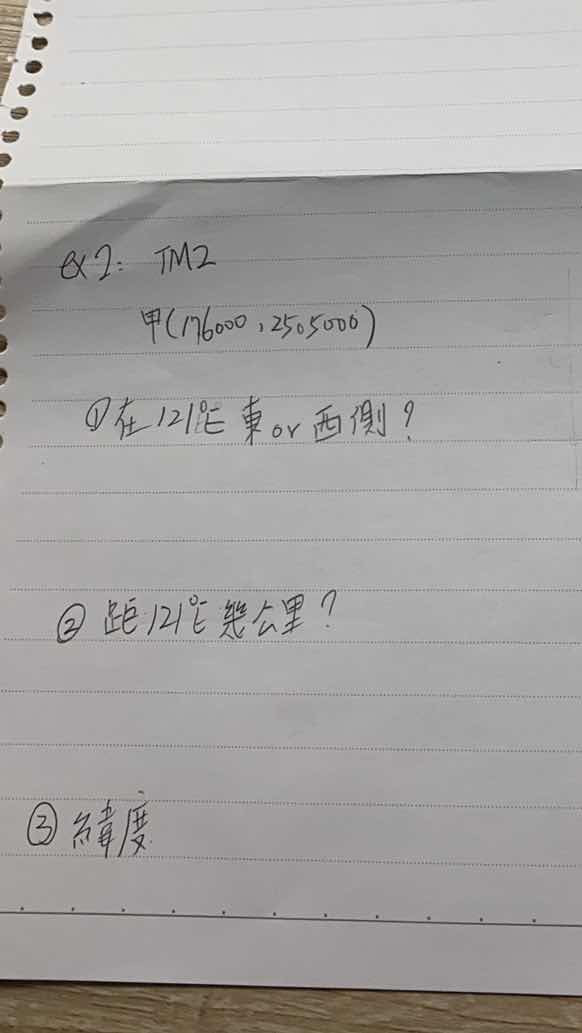 ex2: TM2
甲(176000, 2505000)
①在121°E 東or西側?
②距121°E幾公里?
③緯度